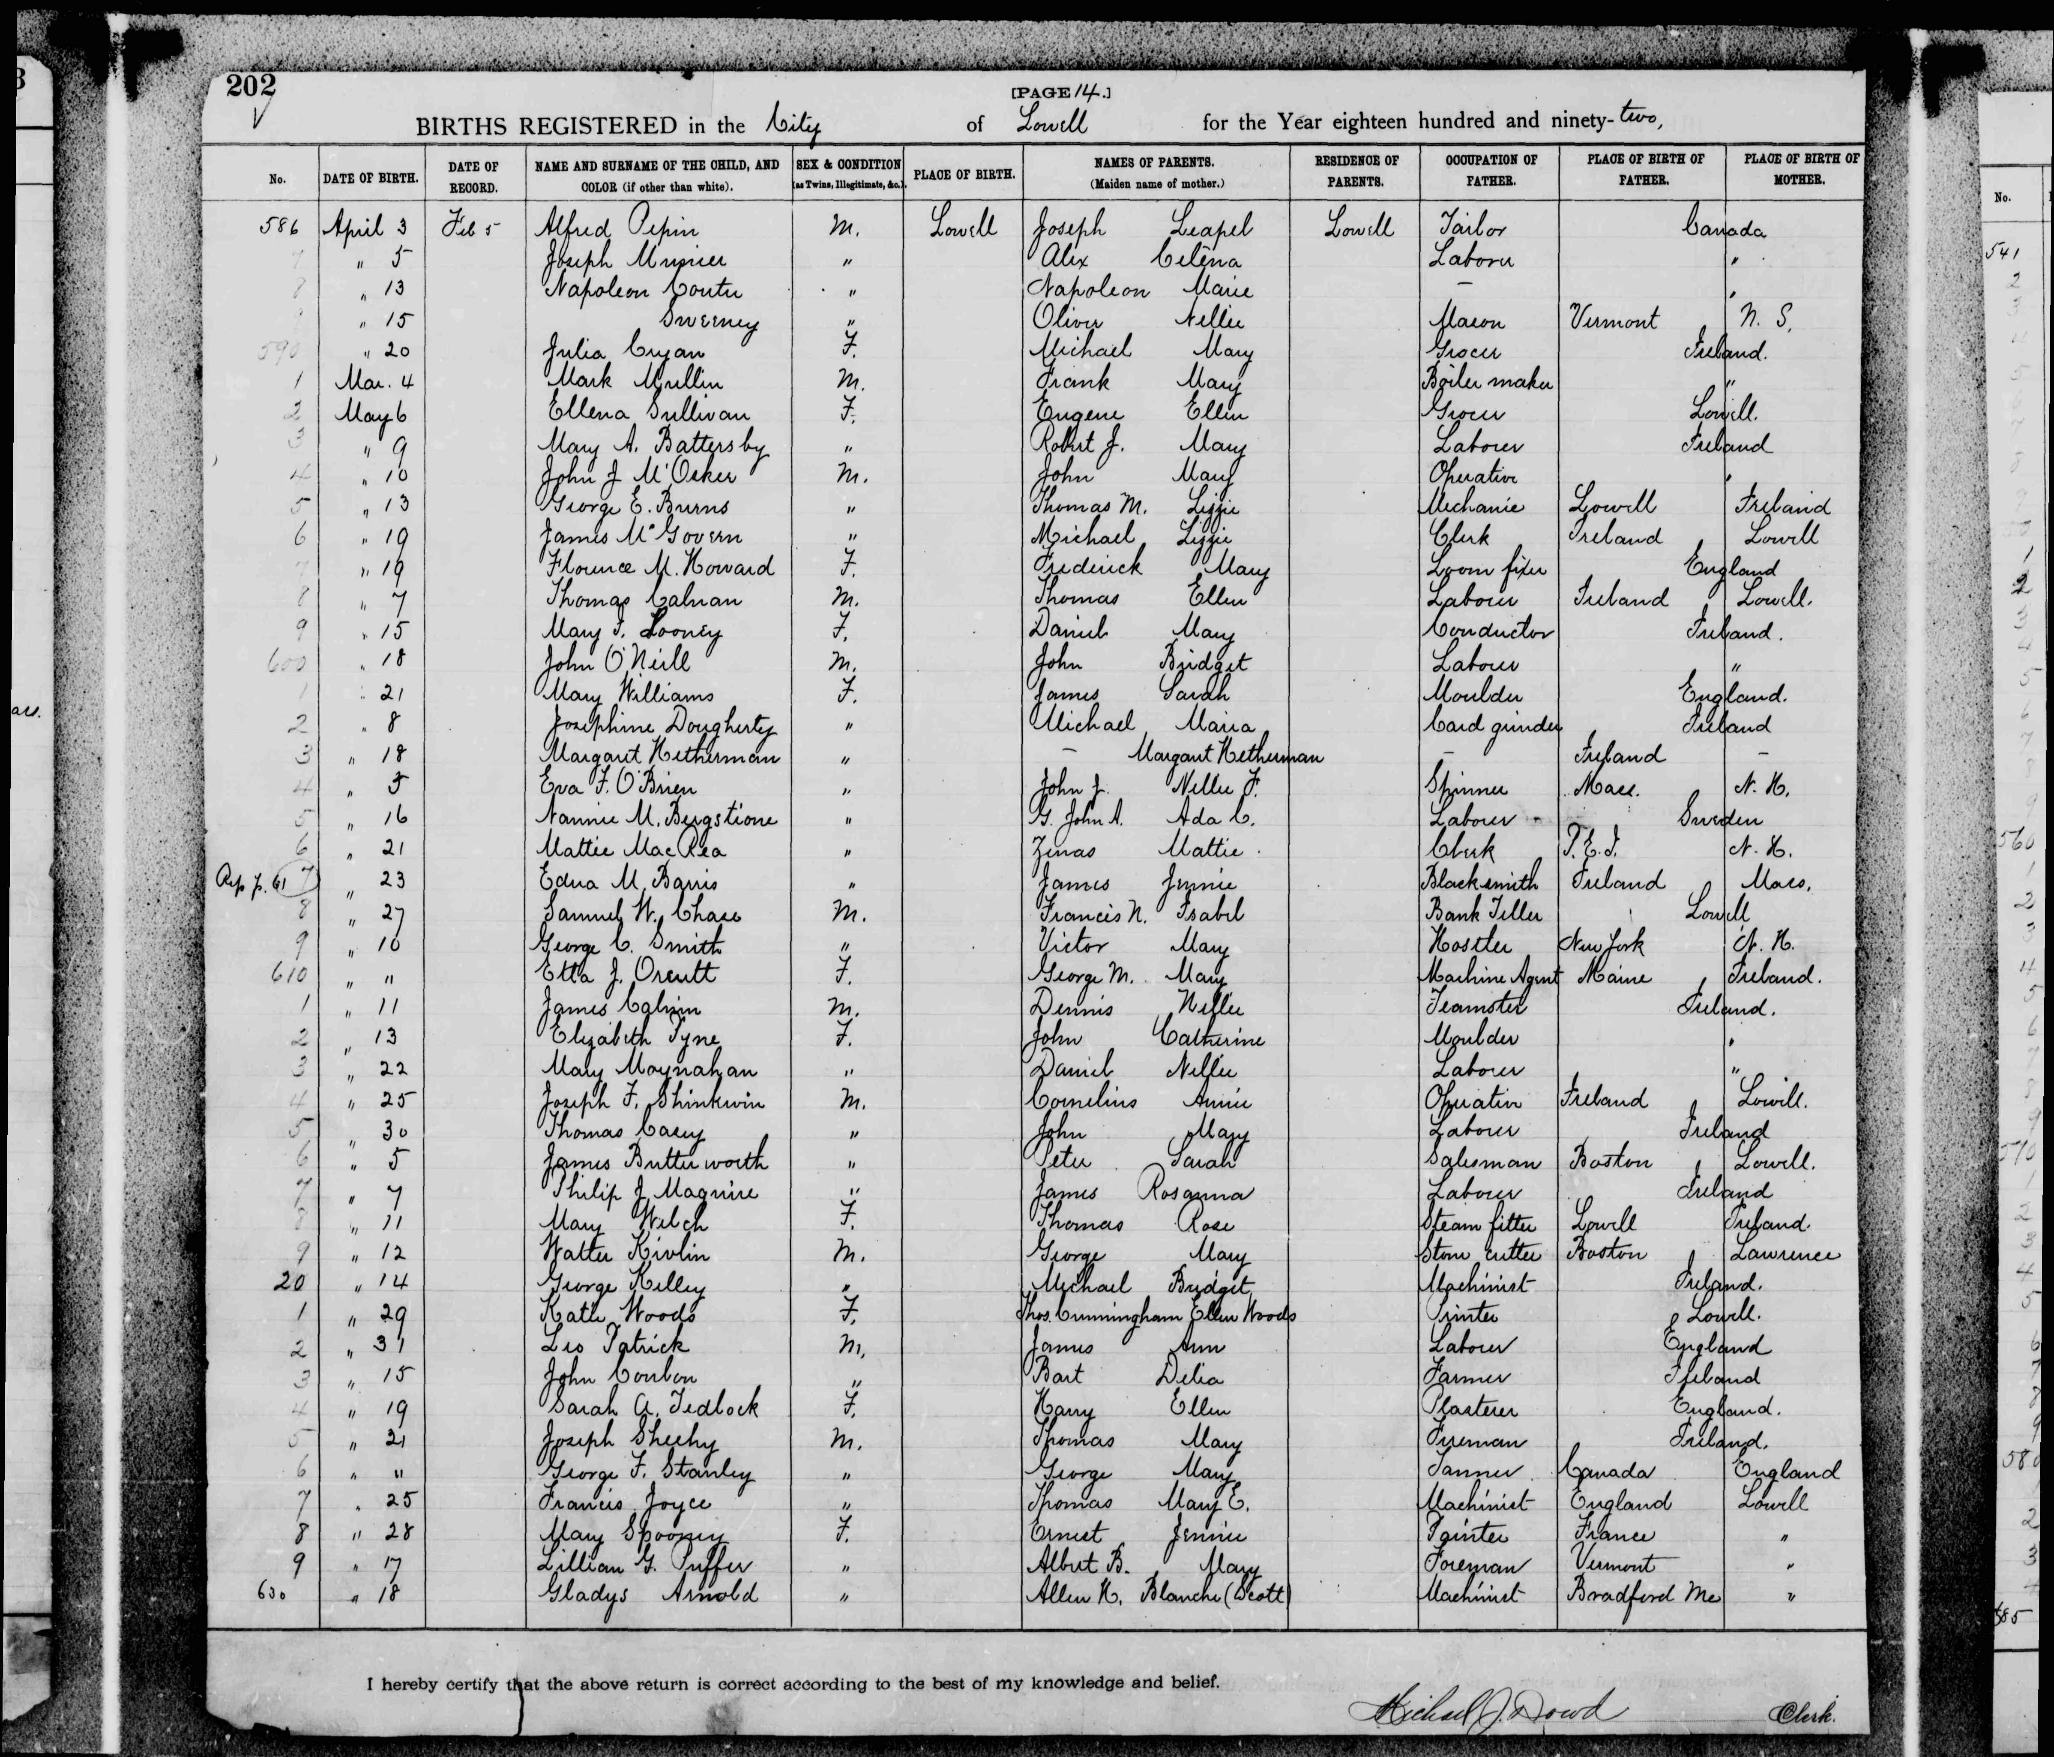 202
[PAGE 14.]
BIRTHS REGISTERED in the City of Lowell for the Year eighteen hundred and ninety-two,
No. DATE OF BIRTH. DATE OF RECORD. NAME AND SURNAME OF THE CHILD, AND COLOR (if other than white). SEX & CONDITION (as Twins, Illegitimate, &c.). PLACE OF BIRTH. NAMES OF PARENTS. (Maiden name of mother.) RESIDENCE OF PARENTS. OCCUPATION OF FATHER. PLACE OF BIRTH OF FATHER. PLACE OF BIRTH OF MOTHER.
586 April 3 Feb 5 Alfred Pepin M. Lowell Joseph Leapel Lowell Tailor Canada
7 " 5 Joseph " Alex Celena Laborer "
8 " 13 Napoleon Coutu " Napoleon Marie – "
" 15 Sweeney " Oliver Nellie Mason Vermont N. S.
590 " 20 Julia Cryan F. Michael Mary Grocer Ireland.
1 Mar. 4 Mark Mullin M. Frank Mary Boiler maker "
2 May 6 Ellena Sullivan F. Eugene Ellen Grocer Lowell.
3 " 9 Mary A. Battersby " Robert J. Mary Laborer Ireland
4 " 10 John J McOsker M. John Mary Operative "
5 " 13 George E. Burns " Thomas M. Lizzie Mechanic Lowell Ireland
6 " 19 James McGovern " Michael Lizzie Clerk Ireland Lowell
7 " 19 Florence M. Howard F. Frederick Mary Loom fixer England
8 " 7 Thomas Calnan M. Thomas Ellen Laborer Ireland Lowell.
9 " 15 Mary F. Looney F. Daniel Mary Conductor Ireland.
600 " 18 John O'Neill M. John Bridget Laborer "
1 " 21 Mary Williams F. James Sarah Moulder England.
2 " 8 Josephine Dougherty " Michael Maria Card grinder Ireland
3 " 18 Margaret Hetherman " – Margaret Hetherman – Ireland –
4 " 5 Eva F. O'Brien " John J. Nellie F. Spinner Mass. N. H.
5 " 16 Nannie M. Bergstione " G. John A. Ada C. Laborer Sweden
6 " 21 Mattie MacRea " Zenas Mattie Clerk P. E. I. N. H.
Rep p. 61 7 " 23 Edna M Barris " James Jennie Blacksmith Ireland Mass.
8 " 27 Samuel W. Chase M. Francis N. Isabel Bank Teller Lowell
9 " 10 George C. Smith " Victor Mary Hostler New York N. H.
610 " " Etta J. Orcutt F. George M. Mary Machine Agent Maine Ireland.
1 " 11 James Calvin M. Dennis Nellie Teamster Ireland.
2 " 13 Elizabeth Tyne F. John Catherine Moulder "
3 " 22 Mary Moynahan " Daniel Nellie Laborer "
4 " 25 Joseph F. Shinkwin M. Cornelius Annie Operative Ireland Lowell.
5 " 30 Thomas Casey " John Mary Laborer Ireland
6 " 5 James Butterworth " Peter Sarah Salesman Boston Lowell.
7 " 7 Philip J Maguire " James Rosanna Laborer Ireland
8 " 11 Mary Welch F. Thomas Rose Steam fitter Lowell Ireland.
9 " 12 Walter Kivlin M. George Mary Stone cutter Boston Lawrence
20 " 14 George Kelley " Michael Bridget Machinist Ireland.
1 " 29 Katie Woods F. Thos. Cunningham Ellen Woods Printer Lowell.
2 " 31 Leo Patrick M. James Ann Laborer England
3 " 15 John Conlon " Bart Delia Farmer Ireland
4 " 19 Sarah A. Tedlock F. Harry Ellen Plasterer England.
5 " 21 Joseph Sheehy M. Thomas Mary Fireman Ireland.
6 " " George F. Stanley " George Mary Tanner Canada England
7 " 25 Francis Joyce " Thomas Mary E. Machinist England Lowell
8 " 28 Mary Spooney F. Ernest Jennie Painter France "
9 " 17 Lillian G. Puffer " Albert B. Mary Foreman Vermont "
630 " 18 Gladys Arnold " Allen H. Blanche (Scott) Machinist Bradford Me "
I hereby certify that the above return is correct according to the best of my knowledge and belief.
Michael J. Dowd Clerk.
No.
541
2
3
560
570
580
585